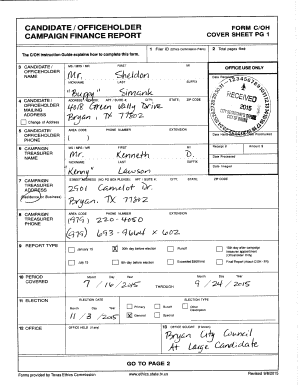 CANDIDATE / OFFICEHOLDER
CAMPAIGN FINANCE REPORT
FORM C/OH
COVER SHEET PG 1
The C/OH Instruction Guide explains how to complete this form.
1 Filer ID (Ethics Commission Filers)
2 Total pages filed:
3 CANDIDATE / OFFICEHOLDER NAME
MS / MRS / MR FIRST MI
Mr. Sheldon
NICKNAME LAST SUFFIX
"Buppy" Simank
OFFICE USE ONLY
Date Received
RECEIVED
2015
4 CANDIDATE / OFFICEHOLDER MAILING ADDRESS
Change of Address
ADDRESS / PO BOX; APT / SUITE #; CITY; STATE; ZIP CODE
Green Valley Drive
Bryan, TX 77802
5 CANDIDATE / OFFICEHOLDER PHONE
AREA CODE PHONE NUMBER EXTENSION
( )
Date Hand-delivered or Date Postmarked
6 CAMPAIGN TREASURER NAME
MS / MRS / MR FIRST MI
Mr. Kenneth D.
NICKNAME LAST SUFFIX
"Kenny" Lawson
Receipt # Amount $
Date Processed
Date Imaged
7 CAMPAIGN TREASURER ADDRESS
(Residence or Business)
STREET ADDRESS (NO PO BOX PLEASE); APT / SUITE #; CITY; STATE; ZIP CODE
2901 Camelot Dr.
Bryan, TX 77802
8 CAMPAIGN TREASURER PHONE
AREA CODE PHONE NUMBER EXTENSION
(979) 220-4050
(979) 693-9664 x 602
9 REPORT TYPE
January 15
30th day before election
Runoff
15th day after campaign treasurer appointment (Officeholder Only)
July 15
8th day before election
Exceeded $500 limit
Final Report (Attach C/OH - FR)
10 PERIOD COVERED
Month Day Year
7 / 16 / 2015
THROUGH
Month Day Year
9 / 24 / 2015
11 ELECTION
ELECTION DATE
Month Day Year
11 / 3 / 2015
ELECTION TYPE
Primary
Runoff
Other Description
General
Special
12 OFFICE
OFFICE HELD (if any)
13 OFFICE SOUGHT (if known)
Bryan City Council
At Large Candidate
GO TO PAGE 2
Forms provided by Texas Ethics Commission
www.ethics.state.tx.us
Revised 9/8/2015